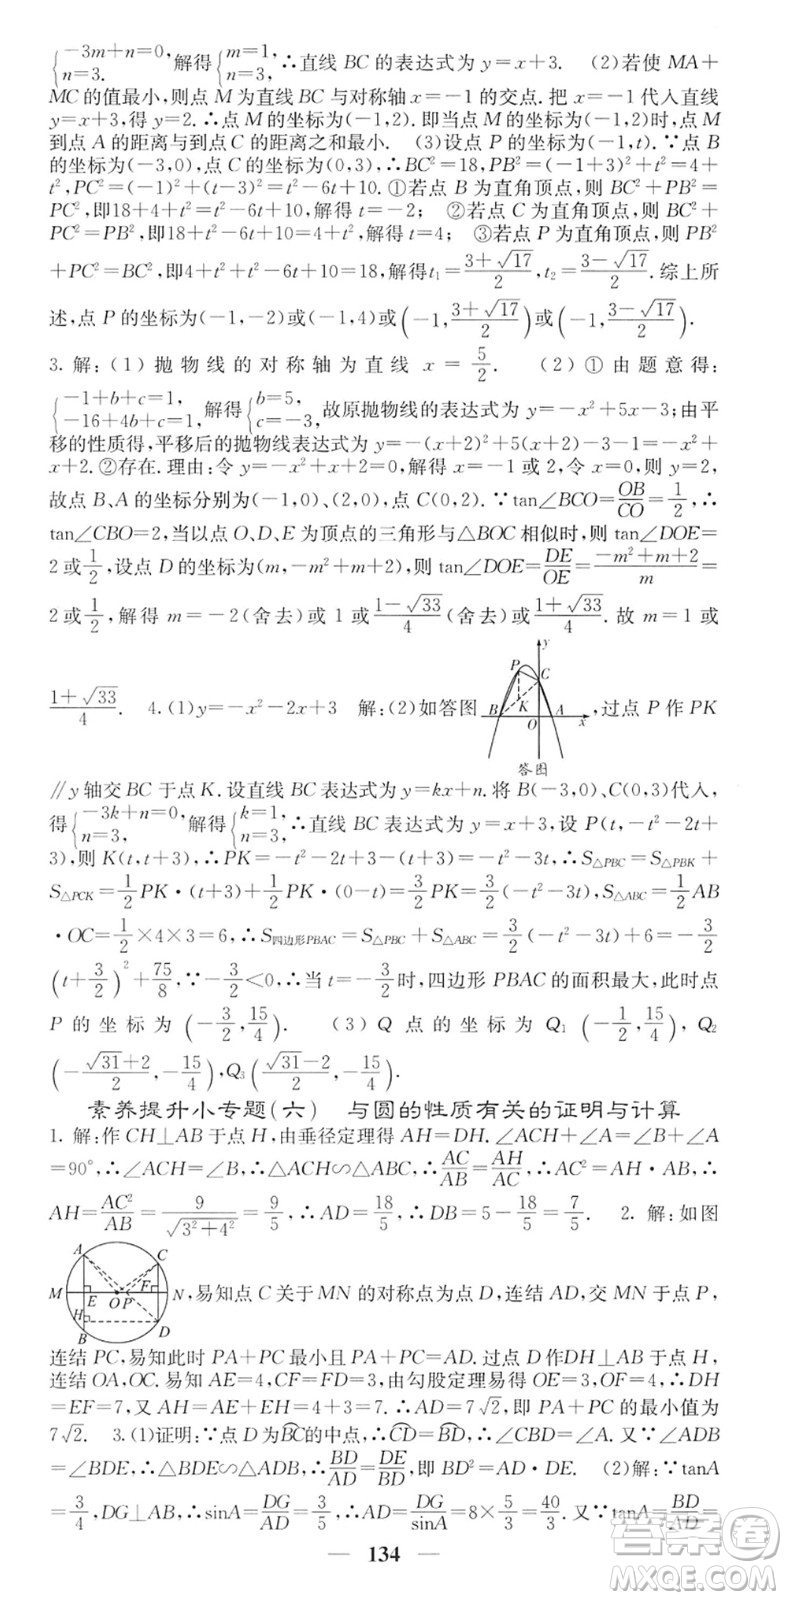 {−3m+n=0, n=3. 解得{m=1, n=3, ∴直线 BC 的表达式为 y=x+3. (2)若使 MA+
MC 的值最小,则点 M 为直线 BC 与对称轴 x=−1 的交点. 把 x=−1 代入直线
y=x+3,得 y=2. ∴点 M 的坐标为(−1,2). 即当点 M 的坐标为(−1,2)时,点 M
到点 A 的距离与到点 C 的距离之和最小. (3)设点 P 的坐标为(−1,t). ∵点 B
的坐标为(−3,0),点 C 的坐标为(0,3),∴BC²=18,PB²=(−1+3)²+t²=4+
t²,PC²=(−1)²+(t−3)²=t²−6t+10. ①若点 B 为直角顶点,则 BC²+PB²=
PC²,即18+4+t²=t²−6t+10,解得 t=−2; ②若点 C 为直角顶点,则 BC²+
PC²=PB²,即18+t²−6t+10=4+t²,解得 t=4; ③若点 P 为直角顶点,则 PB²
+PC²=BC²,即4+t²+t²−6t+10=18,解得t₁=(3+√17)/2,t₂=(3−√17)/2. 综上所
述,点 P 的坐标为(−1,−2)或(−1,4)或(−1,(3+√17)/2)或(−1,(3−√17)/2).
3. 解:(1)抛物线的对称轴为直线 x=5/2. (2)①由题意得:
{−1+b+c=1, −16+4b+c=1, 解得{b=5, c=−3, 故原抛物线的表达式为 y=−x²+5x−3;由平
移的性质得,平移后的抛物线表达式为 y=−(x+2)²+5(x+2)−3−1=−x²+
x+2. ②存在. 理由:令 y=−x²+x+2=0,解得 x=−1 或 2,令 x=0,则 y=2,
故点 B、A 的坐标分别为(−1,0)、(2,0),点 C(0,2). ∵tan∠BCO=OB/CO=1/2,∴
tan∠CBO=2,当以点 O、D、E 为顶点的三角形与△BOC 相似时,则 tan∠DOE=
2 或 1/2,设点 D 的坐标为(m,−m²+m+2),则 tan∠DOE=DE/OE=(−m²+m+2)/m=
2 或 1/2,解得 m=−2(舍去)或 1 或 (1−√33)/4(舍去)或 (1+√33)/4. 故 m=1 或
(1+√33)/4. 4. (1)y=−x²−2x+3 解:(2)如答图 y P C K B O A x 答图 ,过点 P 作 PK
∥y 轴交 BC 于点 K. 设直线 BC 表达式为 y=kx+n. 将 B(−3,0)、C(0,3)代入,
得{−3k+n=0, n=3, 解得{k=1, n=3, ∴直线 BC 的表达式为 y=x+3,设 P(t,−t²−2t+
3),则 K(t,t+3),∴PK=−t²−2t+3−t−3=−t²−3t,∴S△PBC=S△PBK+
S△PCK=1/2PK·(t+3)+1/2PK·(0−t)=3/2PK=3/2(−t²−3t),S△ABC=1/2AB
·OC=1/2×4×3=6,∴S四边形PBAC=S△PBC+S△ABC=3/2(−t²−3t)+6=−3/2
(t+3/2)²+75/8,∵−3/2<0,∴当 t=−3/2时,四边形 PBAC 的面积最大,此时点
P 的坐标为(−3/2,15/4). (3)Q 点的坐标为 Q₁(−1/2,15/4),Q₂
(−(√31+2)/2,−15/4),Q₃((√31−2)/2,−15/4).
素养提升小专题(六) 与圆的性质有关的证明与计算
1. 解:作 CH⊥AB 于点 H,由垂径定理得 AH=DH. ∠ACH+∠A=∠B+∠A
=90°,∴∠ACH=∠B,∴△ACH∽△ABC,∴AC/AB=AH/AC,∴AC²=AH·AB,
AH=AC²/AB=9/√(3²+4²)=9/5,∴AD=18/5,∴DB=5−18/5=7/5. 2. 解:如图
A C M E O P F N H B D ,易知点 C 关于 MN 的对称点为点 D,连结 AD,交 MN 于点 P,
连结 PC,易知此时 PA+PC 最小且 PA+PC=AD. 过点 D 作DH⊥AB 于点 H,
连结 OA,OC. 易知 AE=4,CF=FD=3,由勾股定理可得 OE=3,OF=4,∴DH=
EF=7,又 AH=AE+EH=4+3=7. ∴AD=7√2,即 PA+PC 的最小值为
7√2. 3. (1)证明:∵点 D 为BC的中点,∴CD=BD,∴∠CBD=∠A. 又∵∠ADB
=∠BDE,∴△BDE∽△ADB,∴BD/AD=DE/BD,即 BD²=AD·DE. (2)解:∵tanA
=3/4,DG⊥AB,∴sinA=DG/AD=3/5,∴AD=DG/sinA=8×5/3=40/3. 又∵tanA=BD/AD=
134
答案圈
MXQE.COM